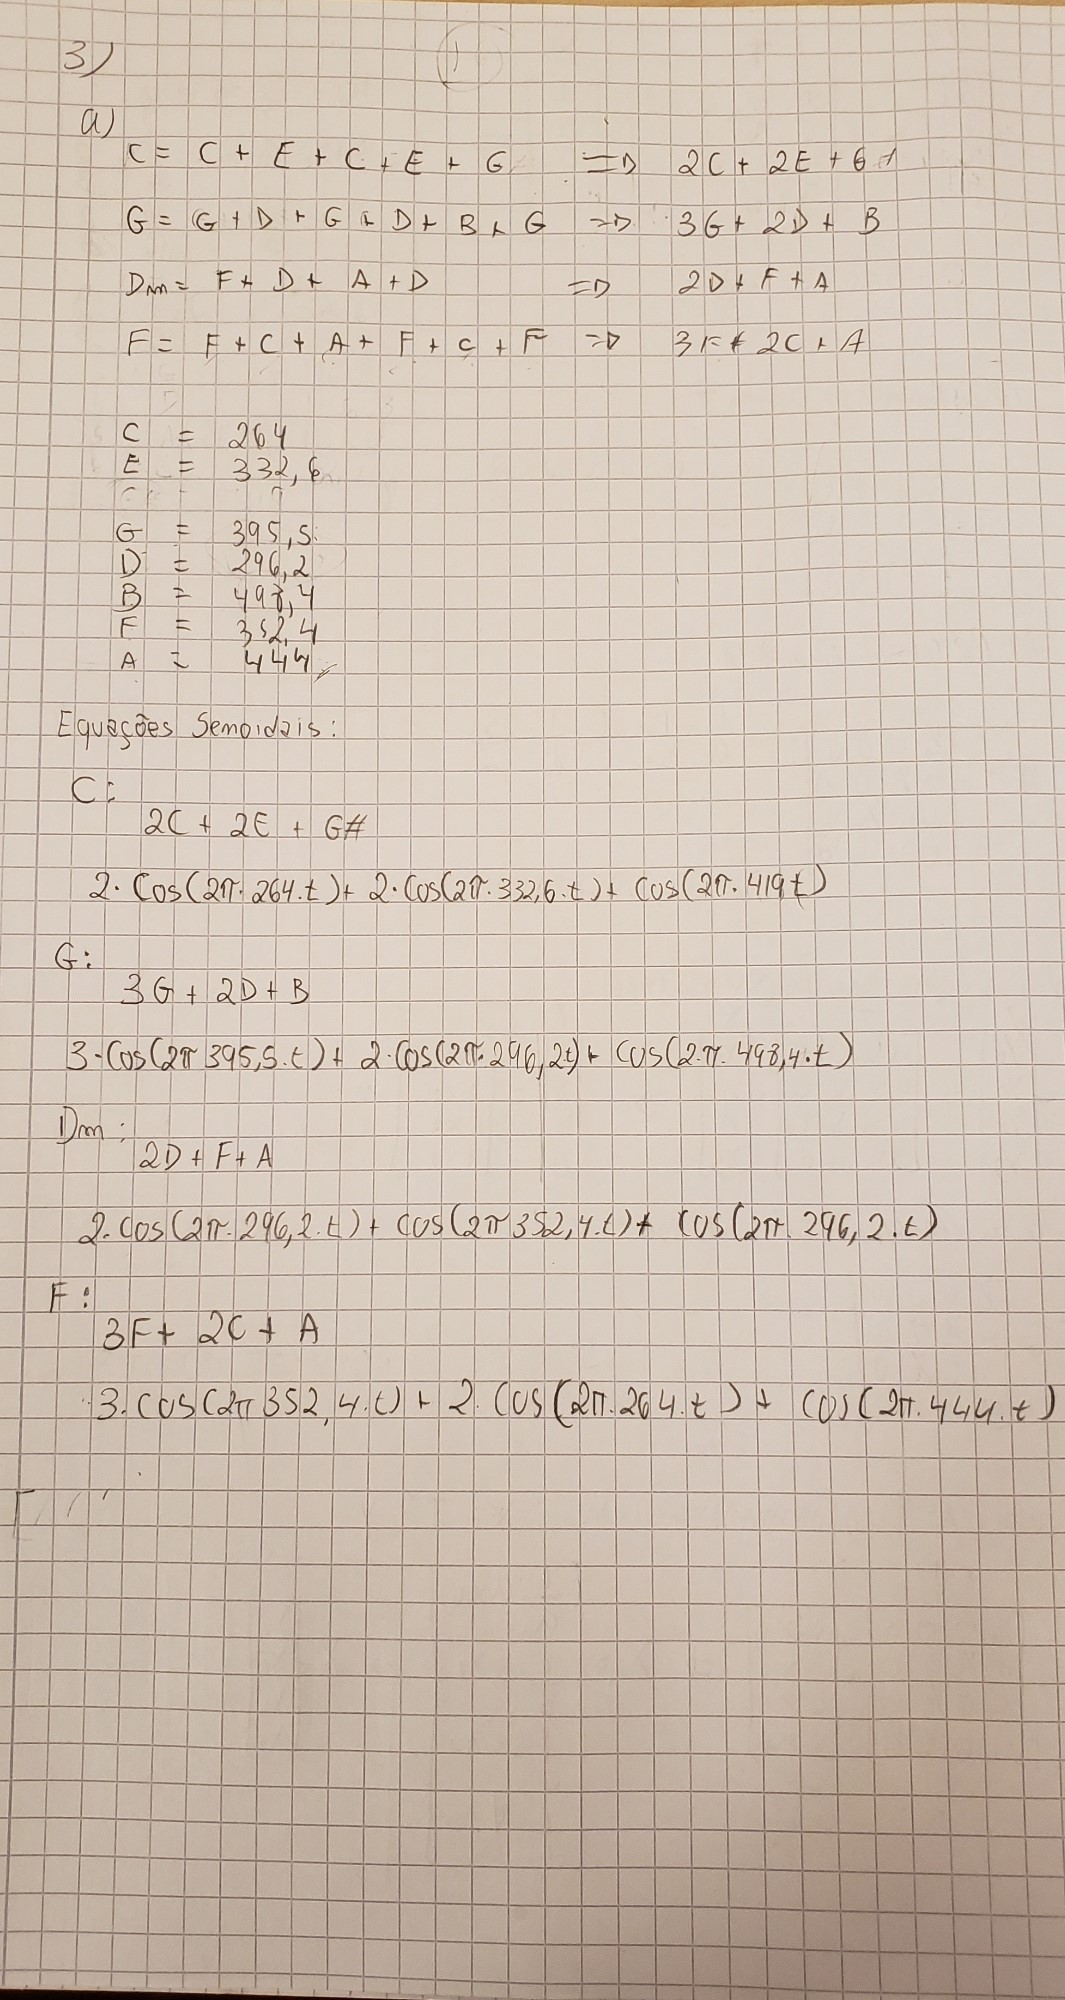 3)
a)
C = C + E + C + E + G => 2C + 2E + G
G = G + D + G + D + B + G => 3G + 2D + B
Dm = F + D + A + D => 2D + F + A
F = F + C + A + F + C + F => 3F + 2C + A
C = 264
E = 332,6
G = 395,5
D = 296,2
B = 498,4
F = 352,4
A = 444
Equações Senoidais:
C:
2C + 2E + G#
2·Cos(2π·264·t) + 2·Cos(2π·332,6·t) + Cos(2π·419t)
G:
3G + 2D + B
3·Cos(2π 395,5·t) + 2·Cos(2π·296,2t) + Cos(2·π·498,4·t)
Dm:
2D + F + A
2·Cos(2π·296,2·t) + Cos(2π 352,4·t) + Cos(2π·296,2·t)
F:
3F + 2C + A
3·Cos(2π 352,4·t) + 2·Cos(2π·264·t) + Cos(2π·444·t)